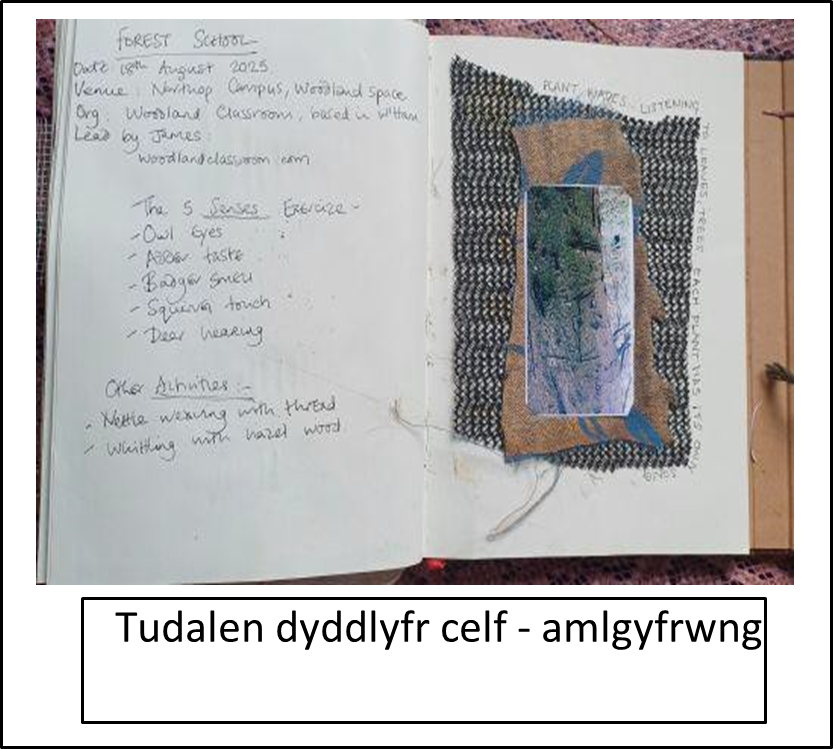 FOREST SCHOOL
Date 18th August 2025
Venue: Northop Campus, Woodland Space
Org: Woodland Classroom, based in
Lead by James:
woodlandclassroom.com
The 5 Senses Exercise -
- Owl Eyes
- taste
- Badger smell
- Squirrel touch
- Deer hearing
Other Activities :-
- Nettle weaving with thread
- Whittling with hazel wood
PLANT WAVES - LISTENING
TO LEAVES, TREES EACH PLANT HAS ITS OWN
SONG
Tudalen dyddlyfr celf - amlgyfrwng